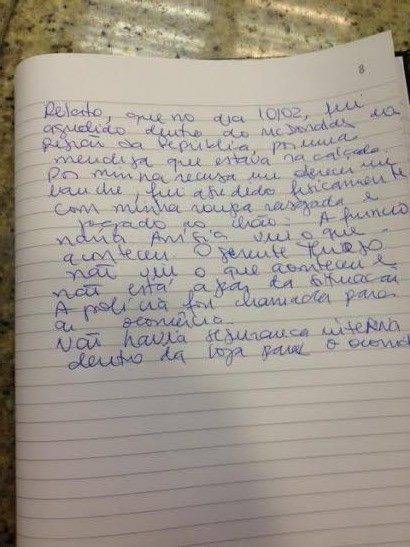 8
Relato, que no dia 10/02, fui
agredido dentro do McDonalds na
Região da República, por uma
mendiga que estava na calçada.
Por minha recusa em oferecer um
lanche, fui agredido fisicamente
com minha roupa rasgada e
jogado no chão. A funcio
nária viu o que
aconteceu. O gerente
não viu o que aconteceu e
não está a par da situação
A polícia foi chamada para
a ocorrência.
Não havia segurança interna
dentro da loja para o ocorrido